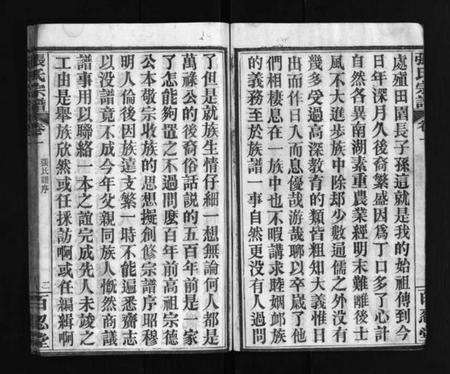 張氏宗譜
卷一
處殖田園長子孫這就是我的始祖傳到今
日年深月久後裔繁盛因爲丁口多了心計
自然各異南湖素重農業經明末難離後士
風不大進步族中除却少數通儒之外沒有
幾多受過高深教育的類皆粗知大義惟日
出而作日入而息優哉游哉聊以卒歲了他
們相棲息在一族中也不暇講求睦婣䘏族
的義務至於族譜一事自然更沒有人過問
了但是就族生情仔細一想無論何人都是
萬祿公的後裔俗話説的五百年前是一家
了怎能夠置之不過問麼百年前高祖宗德
公本敬宗收族的思想擬創修宗譜序昭穆
明人倫後因族遠支繁一時不能遍悉齋志
以沒譜竟不成今年父親同族人慨然商議
譜事用以聯絡一本之誼完成先人未竣之
工由是舉族欣然或任採訪啊或任編緝啊
張氏宗譜
卷一
張氏譜序
二
百忍堂